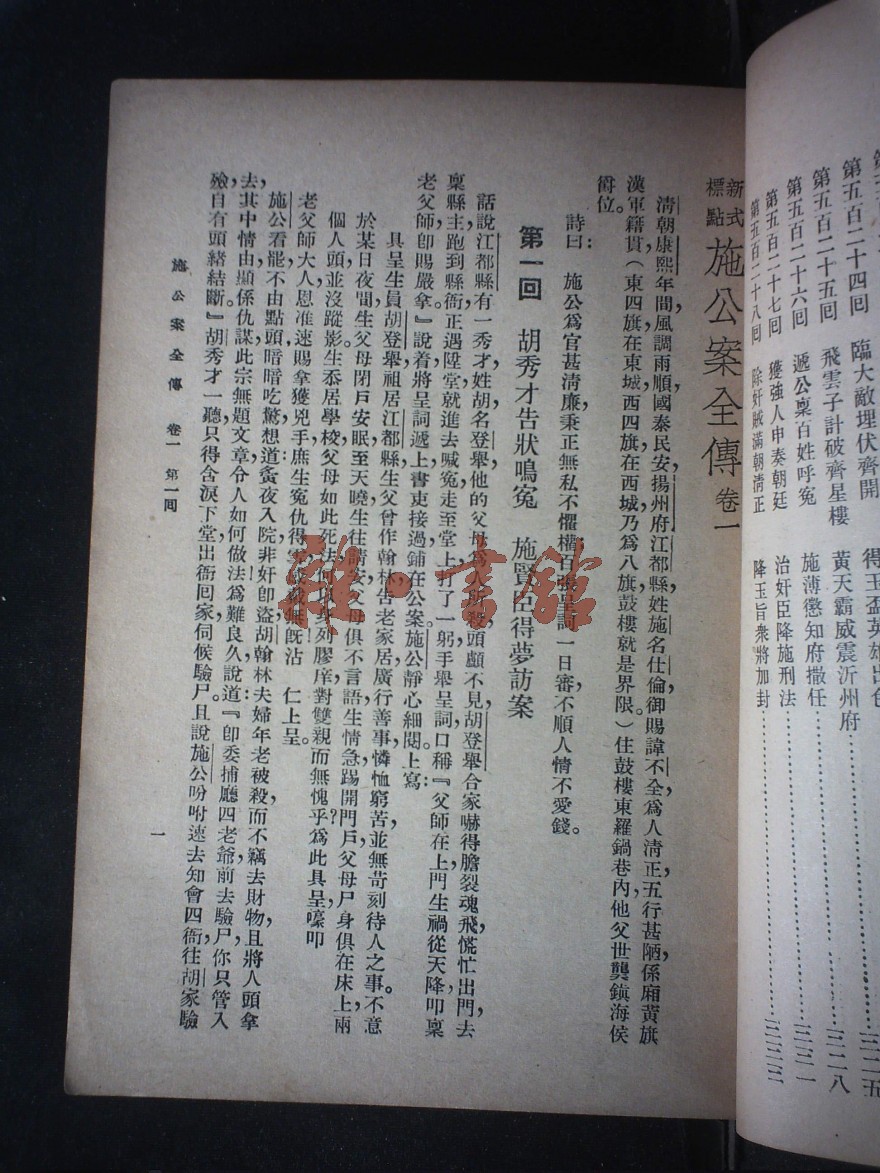 第五百二十四回 臨大敵埋伏齊開
第五百二十五回 飛雲子計破齊星樓 黃天霸威震沂州府
第五百二十六回 遞公稟百姓呼冤 施薄懲知府撒任
第五百二十七回 獲強人申奏朝廷 治奸臣降施刑法
第五百二十八回 除奸賊滿朝清正 降玉旨衆將加封
新式標點 施公案全傳 卷一
清朝康熙年間,風調雨順,國泰民安,揚州府江都縣姓施名仕倫,御賜諱不全,爲人清正,五行甚陋,係廂黃旗
漢軍籍貫(東四旗在東城,西四旗在西城,乃爲八旗,鼓樓就是界限。)住鼓樓東羅鍋巷內,他父世襲鎮海侯
爵位。
詩曰: 施公爲官甚清廉,秉正無私不懼權,百張呈詞一日審,不順人情不愛錢。
第一回 胡秀才告狀鳴冤 施賢臣得夢訪案
話說江都縣有一秀才,姓胡名登舉,他的父母爲人所殺,頭顱不見,胡登舉合家嚇得膽裂魂飛,慌忙出門去
稟縣主,跑到縣衙,正遇陞堂,就進去喊冤,走至堂上,打了一躬,手舉呈詞,口稱『父師在上,門生禍從天降,叩稟
老父師卽賜嚴拿。』說着將呈詞遞上,書吏接過,鋪在公案,施公靜心細閱,上寫:
具呈生員胡登舉,祖居江都縣,生父曾作翰林,告老家居,廣行善事,憐恤窮苦,並無苛刻待人之事。不意
於某日夜間,生父母閉戶安眠,至天曉,生往請安,父母俱不言語,生情急,踢開門戶,父母尸身俱在床上,兩
個人頭,並沒蹤影,生忝居學校,父母如此死法,何以身列膠庠,對雙親而無愧乎?爲此具呈,嚎叩
老父師大人恩准,速賜拿獲兇手,庶生冤仇得雪,感戴無旣,沾 仁上呈。
施公看罷,不由點頭,暗暗吃驚,想道:夤夜入院,非奸卽盜,胡翰林夫婦年老被殺,而不竊去財物,且將人頭拿
去,其中情由,顯係仇謀,此宗無題文章,令人如何做法,爲難良久,說道:『卽委捕廳四老爺前去驗尸,你只管入
殮,自有頭緒結斷。』胡秀才一聽,只得含淚下堂,出衙回家,伺候驗尸。且說施公吩咐速去知會四衙,往胡家驗
施公案全傳 卷一 第一回
一
雜·書館